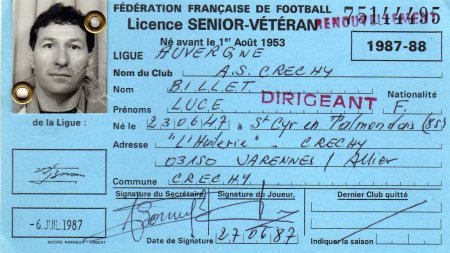 FÉDÉRATION FRANÇAISE DE FOOTBALL
Licence SENIOR-VÉTÉRAN
RENOUVELLEMENT
75144495
Né avant le 1er Août 1953
1987-88
LIGUE AUVERGNE
Nom du Club A.S. CRECHY
Nom BILLET
DIRIGEANT
Nationalité
Prénoms LUCE F.
de la Ligue :
Né le 23.06.47 à St Cyr en Talmondais (85)
Adresse "L'Huilerie" - CRECHY
03150 VARENNES / Allier
Commune CRECHY
Signature du Secrétaire Signature du Joueur Dernier Club quitté
-6. JUIL 1987
Date de Signature 27 06 87 Indiquer la saison
MOORE PARAGON - ARGENT